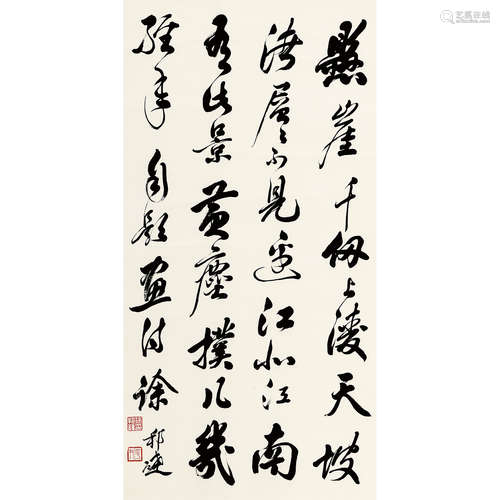 懸崖千仞上凌天坡
濤層々不見邊江北江南
此景黃塵撲几幾
經年 自題畫詩 徐
邦達